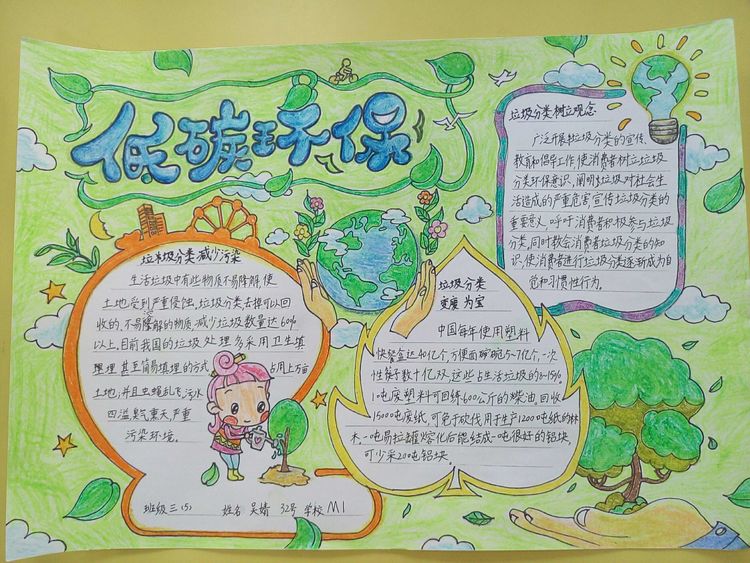 低碳环保
垃圾分类树立观念
广泛开展垃圾分类的宣传、
教育和倡导工作,使消费者树立垃圾
分类环保意识,阐明垃圾对社会生
活造成的严重危害,宣传垃圾分类的
重要意义,呼吁消费者积极参与垃圾
分类,同时教会消费者垃圾分类的知
识,使消费者进行垃圾分类逐渐成为自
觉和习惯性行为。
垃圾分类减少污染
生活垃圾中有些物质不易降解,使
土地受到严重侵蚀,垃圾分类去掉可以回
收的、不易降解的物质,减少垃圾数量达60%
以上,目前我国的垃圾处理多采用卫生填
埋理甚至简易填埋的方式 占用上万亩
土地;并且虫蝇乱飞,污水
四溢,臭气熏天,严重
污染环境。
垃圾分类
变废为宝
中国每年使用塑料
快餐盒达40亿个,方便面碗5-7亿个,一次
性筷子数十亿双,这些占生活垃圾的8-15%
1吨废塑料可回炼600公斤的煤油,回收
1500吨废纸,可免于砍伐用于生产1200吨纸的林
木,一吨易拉罐熔化后能结成一吨很好的铝块,
可少采20吨铝块。
班级三(5) 姓名 吴婧 32号 学校 M1